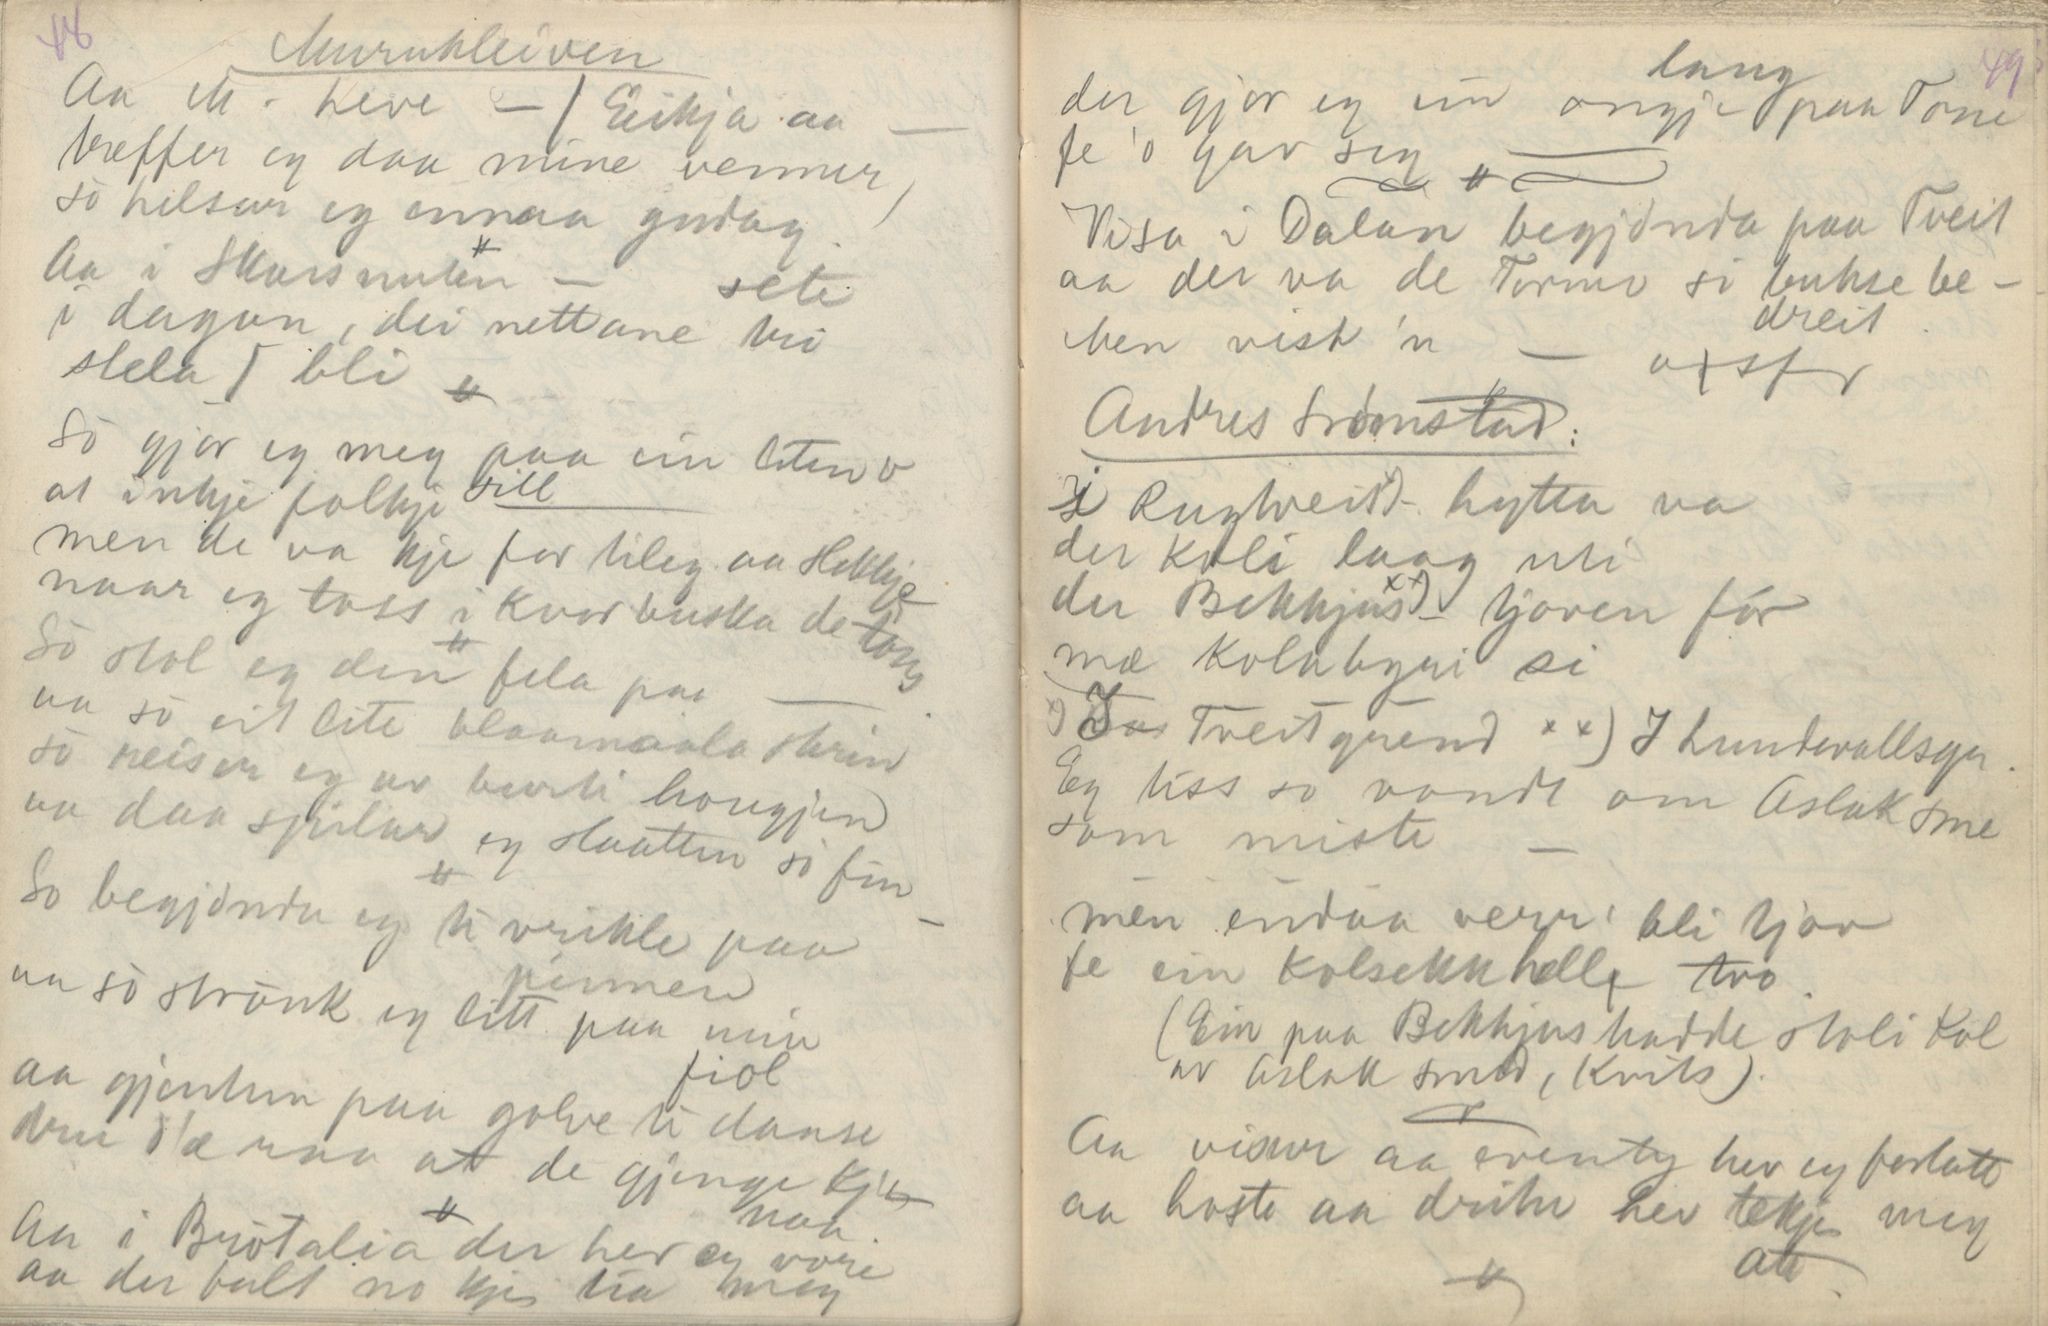 48
Murukleiven
Aa M. Keve — / Eikja aa —
treffer eg daa mine venner /
so helsar eg ennaa godag.
Aa i Skarsnuten — sete
i dagan, dei nettane tri
stela / bli
So gjor eg meg paa ein liten v
at inkje folkje sill
men de va kje for tileg aa slekkje
naar eg tass i kvar buska de låg
So stol eg den fela paa —
aa so eit lite blaamaala skrin
so reiser eg av burti haugjen
aa daa spilar eg slaatten so fin —
So begjónda eg ti vrikle paa
pinnen
aa so strónk eg litt paa min
fiol
aa gjentun paa golve ti danse
dru d'æ raa at de gjenge kje
naa.
Aa i Brótalia der hev eg vore
aa der balt no kje tia meg
49
der gjor eg ein lang ongje paa Tone
fe 'o gav seg
Visa i Dalan begjónda paa Tveit
aa der va de Tormo si bukse be-
dreit.
men visk 'n — osfr
Andres Srømstad:
I Rugtveit x)- hytta va
der Koli laag uti
der Bekkjus xx)- tjoven fór
mæ Kolabyri si
x) I Tveitgrend xx) I Lundevallsgr.
Eg tiss so vondt om Aslak sme
som miste —
men endaa verr' bli tjov
fe ein Kolsekk hell tvo.
(Ein paa Bekkjus hadde stoli Kol
av Aslak smed, Kvits).
Aa visur aa eventy hev eg forlatt
aa hoste aa drikke hev tekje meg
att